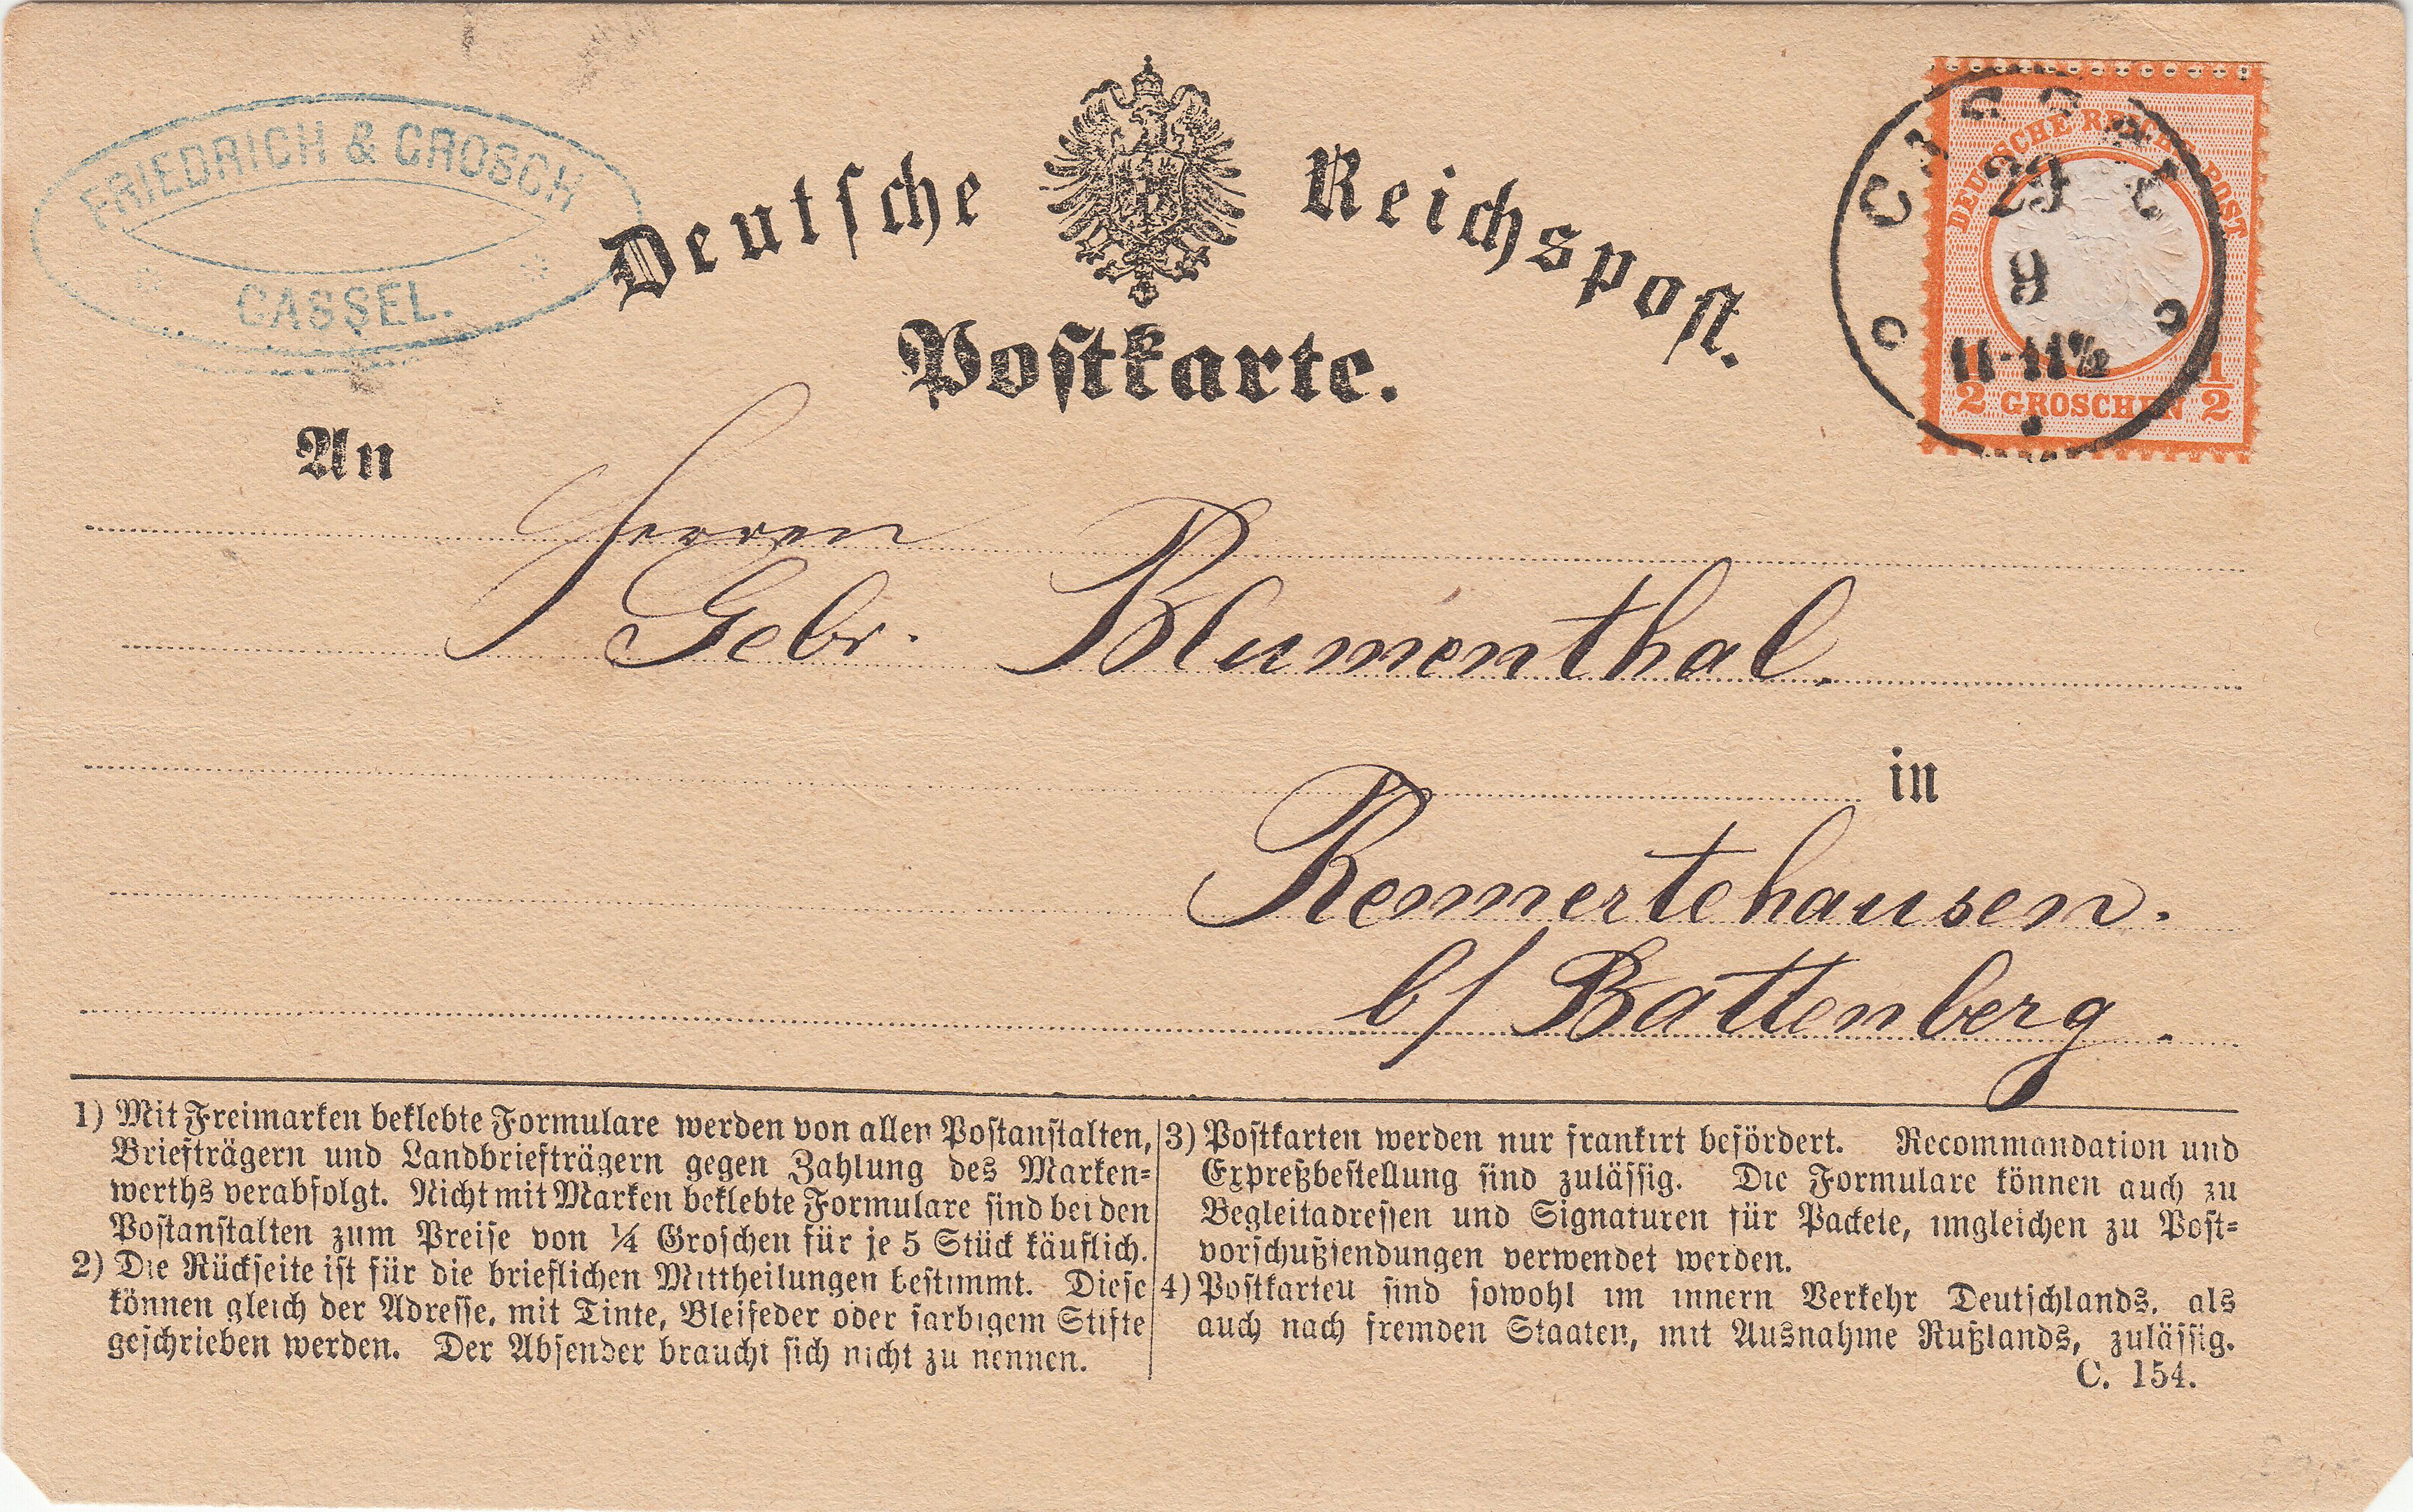 FRIEDRICH & GROSCH
CASSEL.
Deutsche Reichspost.
Postkarte.
DEUTSCHE REICHS-POST
1/2 GROSCHEN 1/2
CASSEL
29
9
11-11½
An
Herren
Gebr. Blumenthal.
in
Rennertehausen.
b/ Battenberg.
1) Mit Freimarken beklebte Formulare werden von allen Postanstalten,
Briefträgern und Landbriefträgern gegen Zahlung des Marken-
werths verabfolgt. Nicht mit Marken beklebte Formulare sind bei den
Postanstalten zum Preise von ¼ Groschen für je 5 Stück käuflich.
2) Die Rückseite ist für die brieflichen Mittheilungen bestimmt. Diese
können gleich der Adresse, mit Tinte, Bleifeder oder farbigem Stifte
geschrieben werden. Der Absender braucht sich nicht zu nennen.
3) Postkarten werden nur frankirt befördert. Recommandation und
Expreßbestellung sind zulässig. Die Formulare können auch zu
Begleitadressen und Signaturen für Packete, imgleichen zu Post-
vorschußsendungen verwendet werden.
4) Postkarten sind sowohl im innern Verkehr Deutschlands, als
auch nach fremden Staaten, mit Ausnahme Rußlands, zulässig.
C. 154.